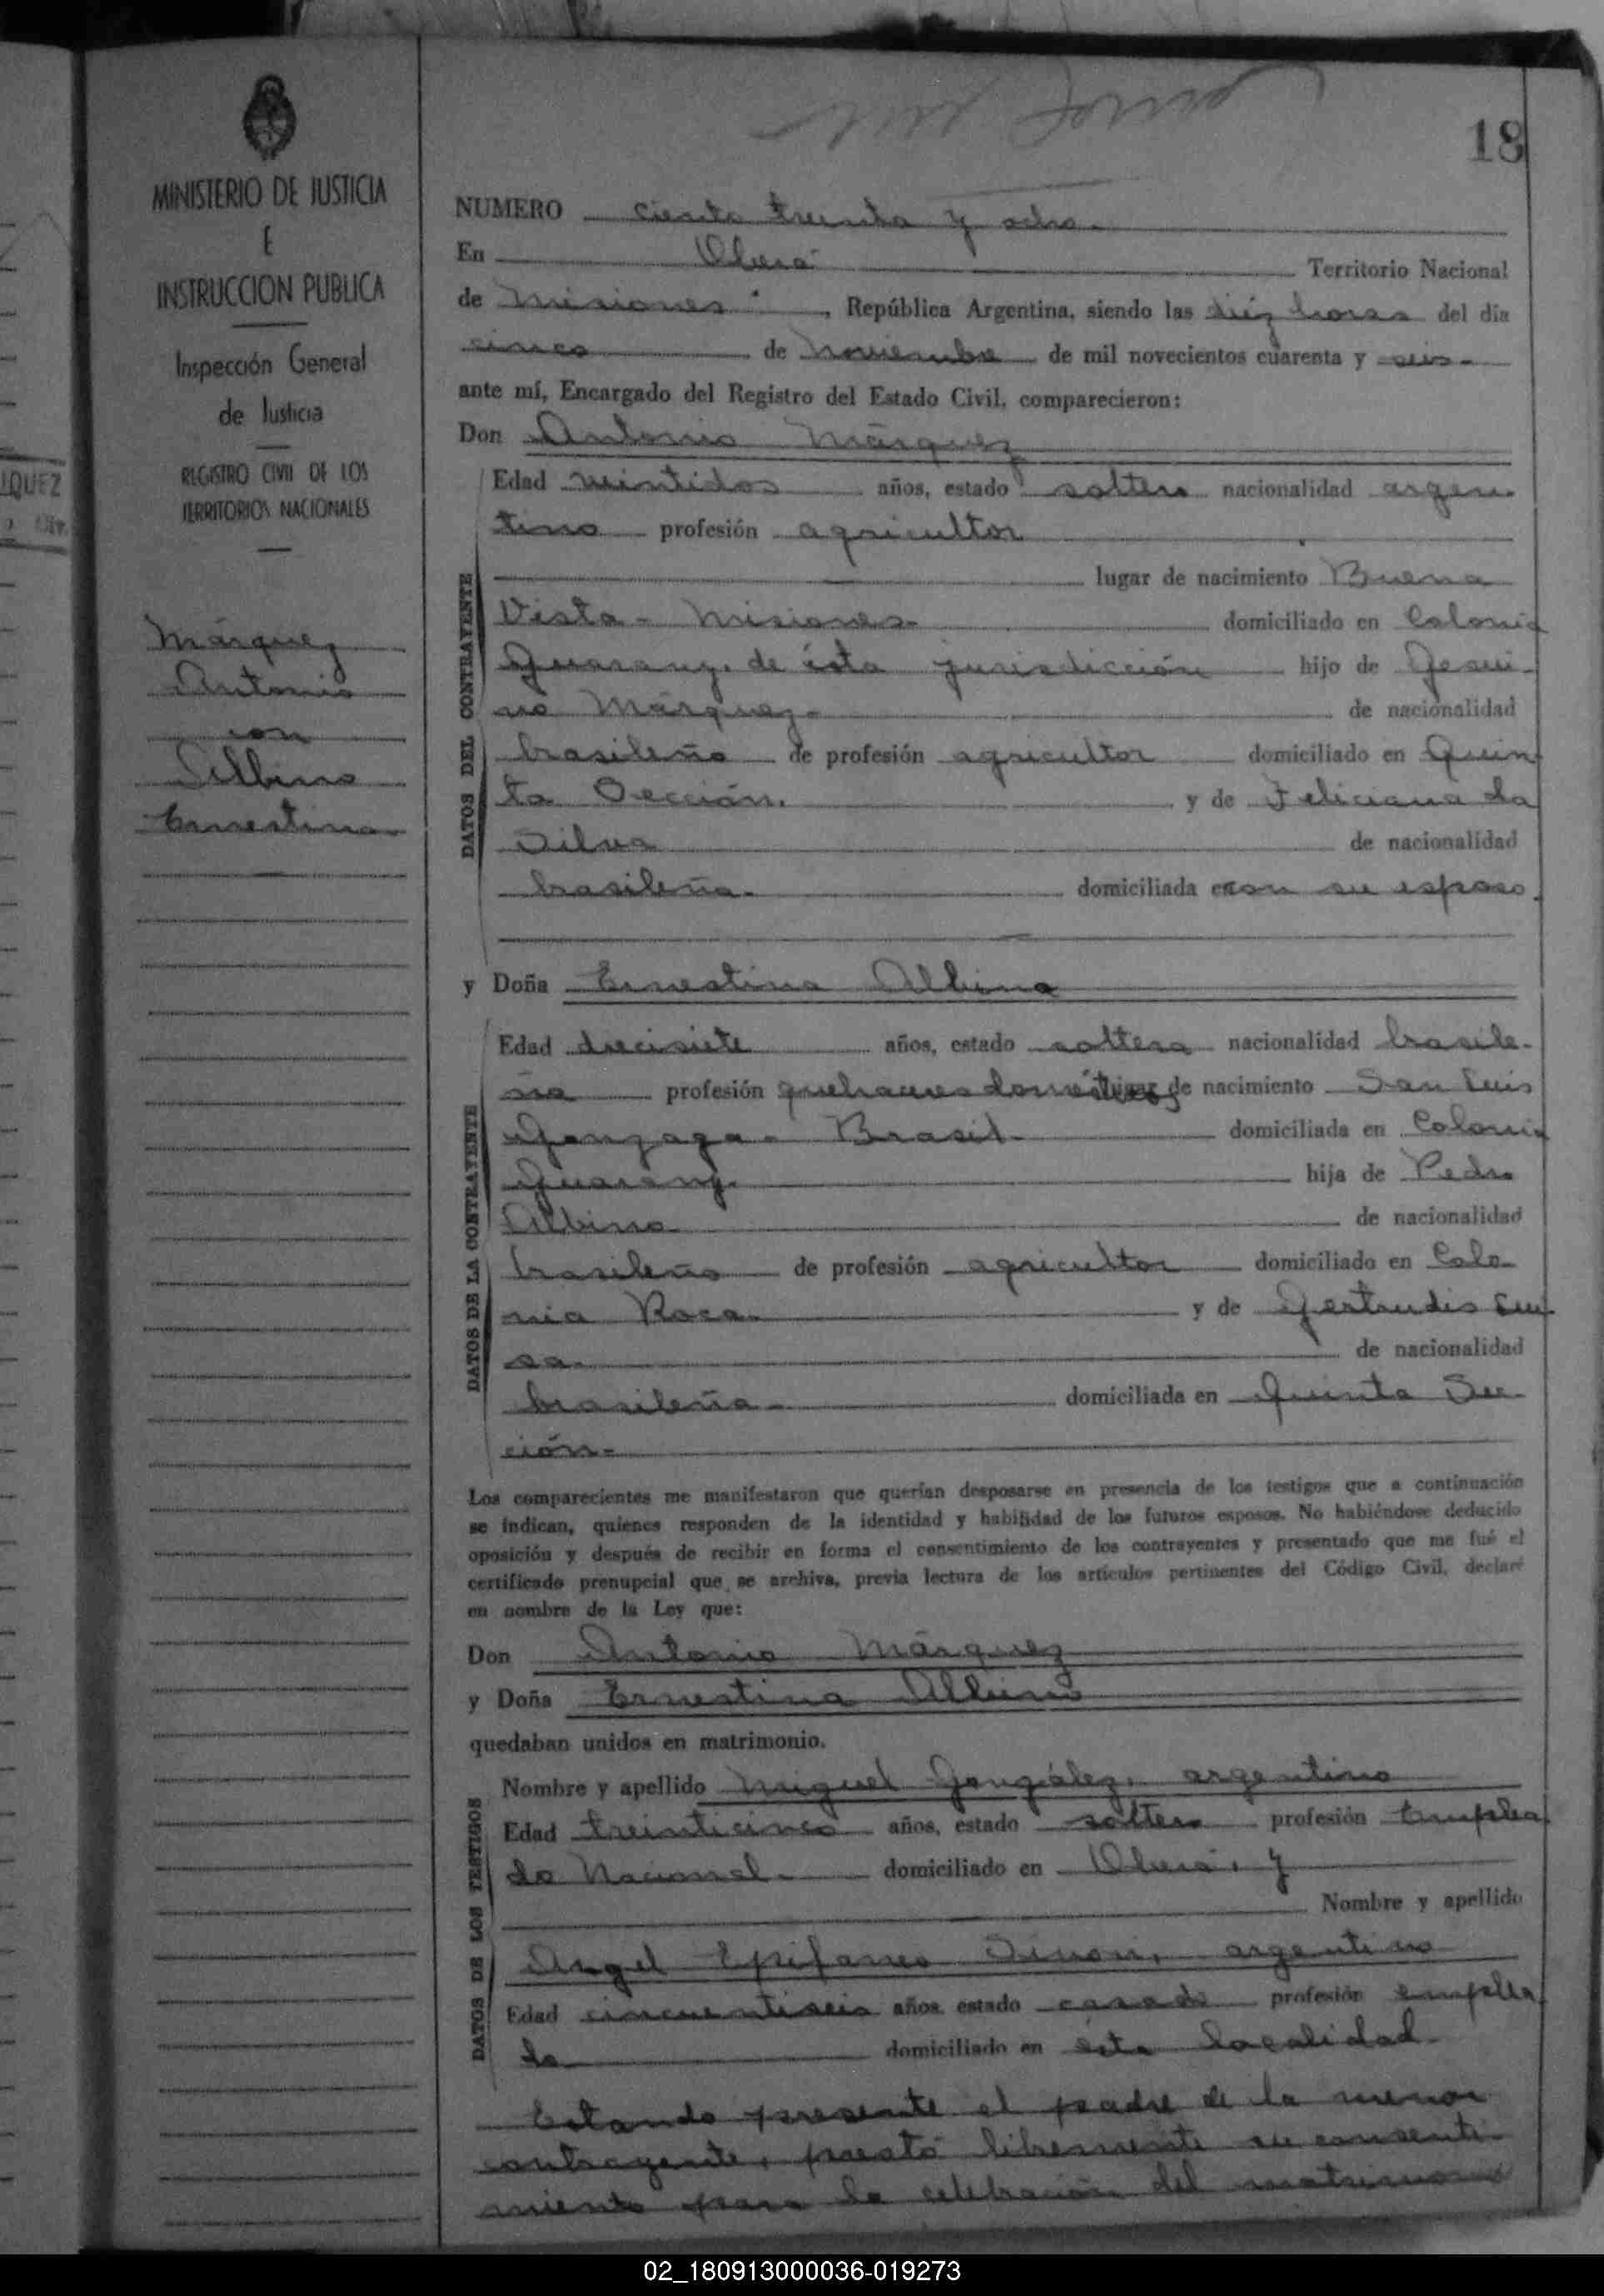 18
MINISTERIO DE JUSTICIA
E
INSTRUCCION PUBLICA
Inspección General
de Justicia
REGISTRO CIVIL DE LOS
TERRITORIOS NACIONALES
IQUEZ
Márquez
Antonio
con
Albino
Ernestina
NUMERO ciento treinta y ocho.
En Oberá Territorio Nacional
de Misiones, República Argentina, siendo las diéz horas del dia
cinco de noviembre de mil novecientos cuarenta y seis-
ante mí, Encargado del Registro del Estado Civil, comparecieron:
Don Antonio Márquez
DATOS DEL CONTRAYENTE
Edad veintidos años, estado soltero nacionalidad argen-
tino profesión agricultor
lugar de nacimiento Buena
Vista - Misiones- domiciliado en Colonia
Guarany, de ésta jurisdicción hijo de
Márquez- de nacionalidad
brasileño de profesión agricultor domiciliado en Quin
ta Sección. y de Feliciana da
Silva de nacionalidad
brasileña- domiciliada con su esposo.
y Doña Ernestina Albino
DATOS DE LA CONTRAYENTE
Edad diecisiete años, estado soltera nacionalidad brasile-
ña profesión quehaceres domésticos lugar de nacimiento San Luis
Gonzaga - Brasil- domiciliada en Colonia
Guarany. hija de Pedro
Albino de nacionalidad
brasileño de profesión agricultor domiciliado en Colo-
nia Roca. y de Gertrudis Lui-
sa. de nacionalidad
brasileña- domiciliada en Quinta Sec-
ción-
Los comparecientes me manifestaron que querían desposarse en presencia de los testigos que a continuación
se indican, quienes responden de la identidad y habilidad de los futuros esposos. No habiéndose deducido
oposición y después de recibir en forma el consentimiento de los contrayentes y presentado que me fué el
certificado prenupcial que se archiva, previa lectura de los artículos pertinentes del Código Civil, declaré
en nombre de la Ley que:
Don Antonio Márquez
y Doña Ernestina Albino
quedaban unidos en matrimonio.
DATOS DE LOS TESTIGOS
Nombre y apellido Miguel González, argentino
Edad treinticinco años, estado soltero profesión Emplea
do Nacional- domiciliado en Oberá, y
Nombre y apellido
Angel Epifaneo argentino
Edad cincuentiseis años estado casado profesión emplea
do domiciliado en ésta localidad-
Estando presente el padre de la menor
contrayente, prestó libremente su consenti-
miento para la celebración del matrimonio
02_180913000036-019273